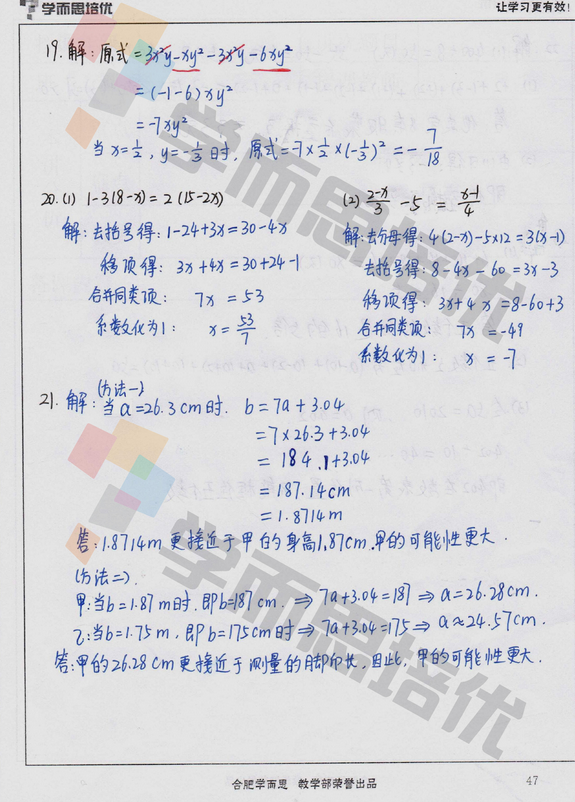 学而思培优
让学习更有效!
19. 解: 原式 = 3x²y - xy² - 3x²y - 6xy²
= (-1-6)xy²
= -7xy²
当 x=1/2, y=-1/3 时, 原式 = -7×1/2×(-1/3)² = -7/18.
20. (1) 1-3(8-x) = 2(15-2x)
解: 去括号得: 1-24+3x = 30-4x
移项得: 3x+4x = 30+24-1
合并同类项: 7x = 53
系数化为1: x = 53/7
(2) (2-x)/3 - 5 = (x-1)/4
解: 去分母得: 4(2-x)-5×12 = 3(x-1)
去括号得: 8-4x-60 = 3x-3
移项得: 3x+4x = 8-60+3
合并同类项: 7x = -49
系数化为1: x = -7
(方法一)
21. 解: 当 a=26.3cm时. b = 7a+3.04
= 7×26.3+3.04
= 184.1+3.04
= 187.14cm
= 1.8714m
答: 1.8714m 更接近于甲的身高1.87cm. 甲的可能性更大.
(方法二).
甲: 当b=1.87m时, 即b=187cm. ⇒ 7a+3.04=187 ⇒ a=26.28cm.
乙: 当b=1.75m, 即b=175cm时 ⇒ 7a+3.04=175 ⇒ a≈24.57cm.
答: 甲的26.28cm更接近于测量的脚印长, 因此, 甲的可能性更大.
学而思培优
学而思培优
合肥学而思 教学部荣誉出品
47